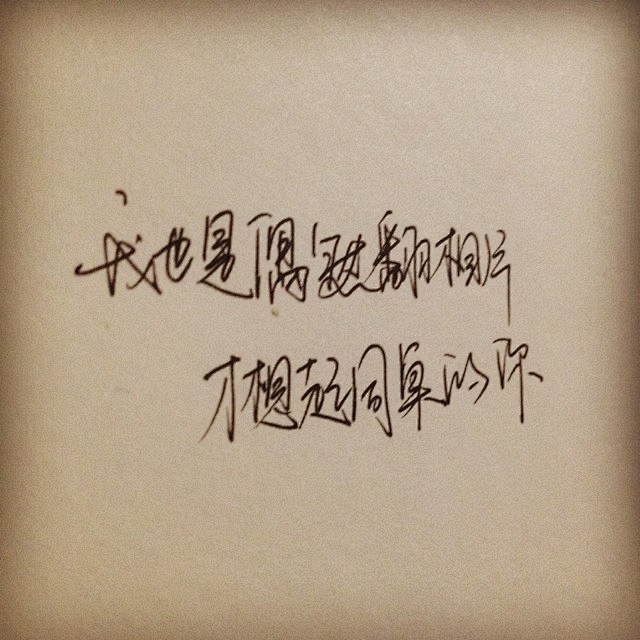 我也是偶然翻相片
才想起同桌的你